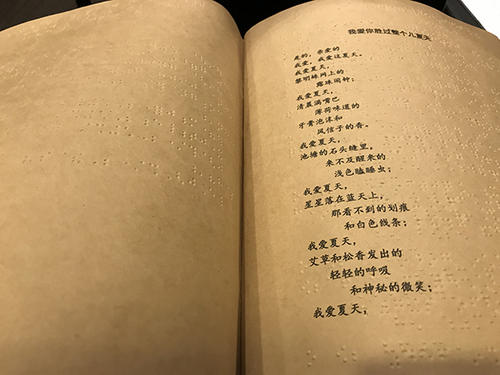 我爱你胜过整个儿夏天
是的,亲爱的
我爱,我爱这夏天。
我爱夏天,
黎明蛛网上的
露珠闹钟;
我爱夏天,
清晨满嘴巴
薄荷味道的
牙膏泡沫和
风信子的香。
我爱夏天,
池塘的石头缝里,
来不及醒来的
浅色瞌睡虫;
我爱夏天,
星星落在蓝天上,
那看不到的划痕
和白色线条;
我爱夏天,
艾草和松香发出的
轻轻的呼吸
和神秘的微笑;
我爱夏天,